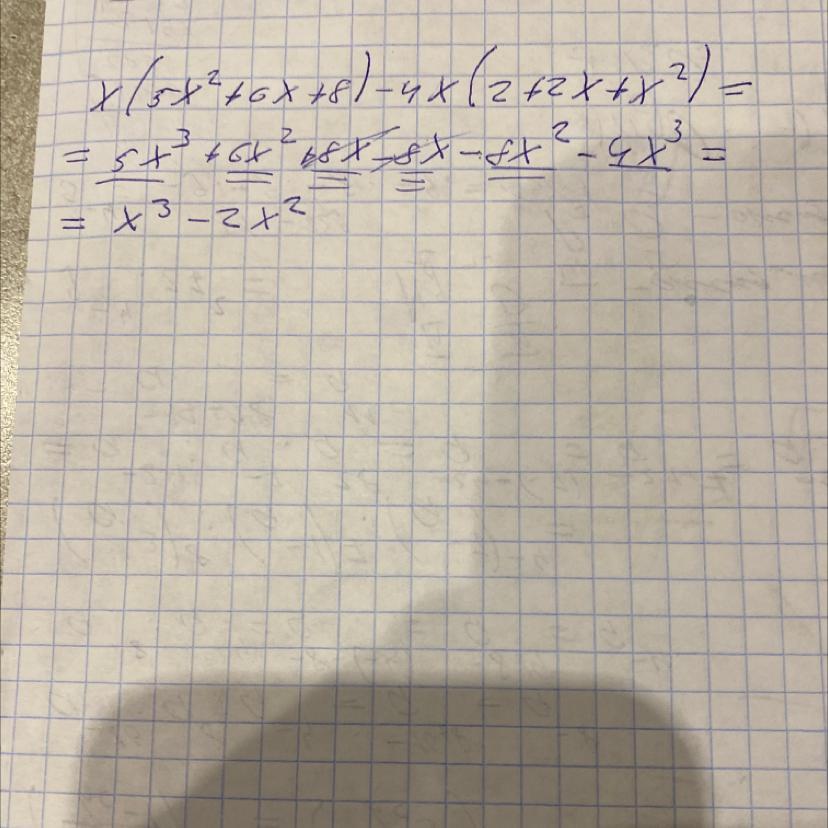 x(5x²+6x+8)-4x(2+2x+x²)=
=5x³+6x²+8x-8x-8x²-4x³=
=x³-2x²